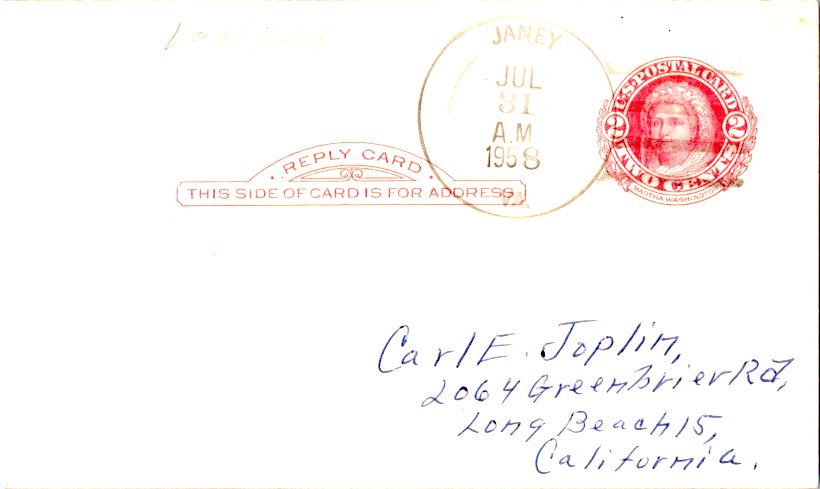 Last Day
JANEY
JUL
31
A.M
1958
VA.
U.S. POSTAL CARD
2 2
TWO CENTS
MARTHA WASHINGTON
· REPLY CARD ·
THIS SIDE OF CARD IS FOR ADDRESS
Carl E. Joplin,
2064 Greenbrier Rd,
Long Beach 15,
California.